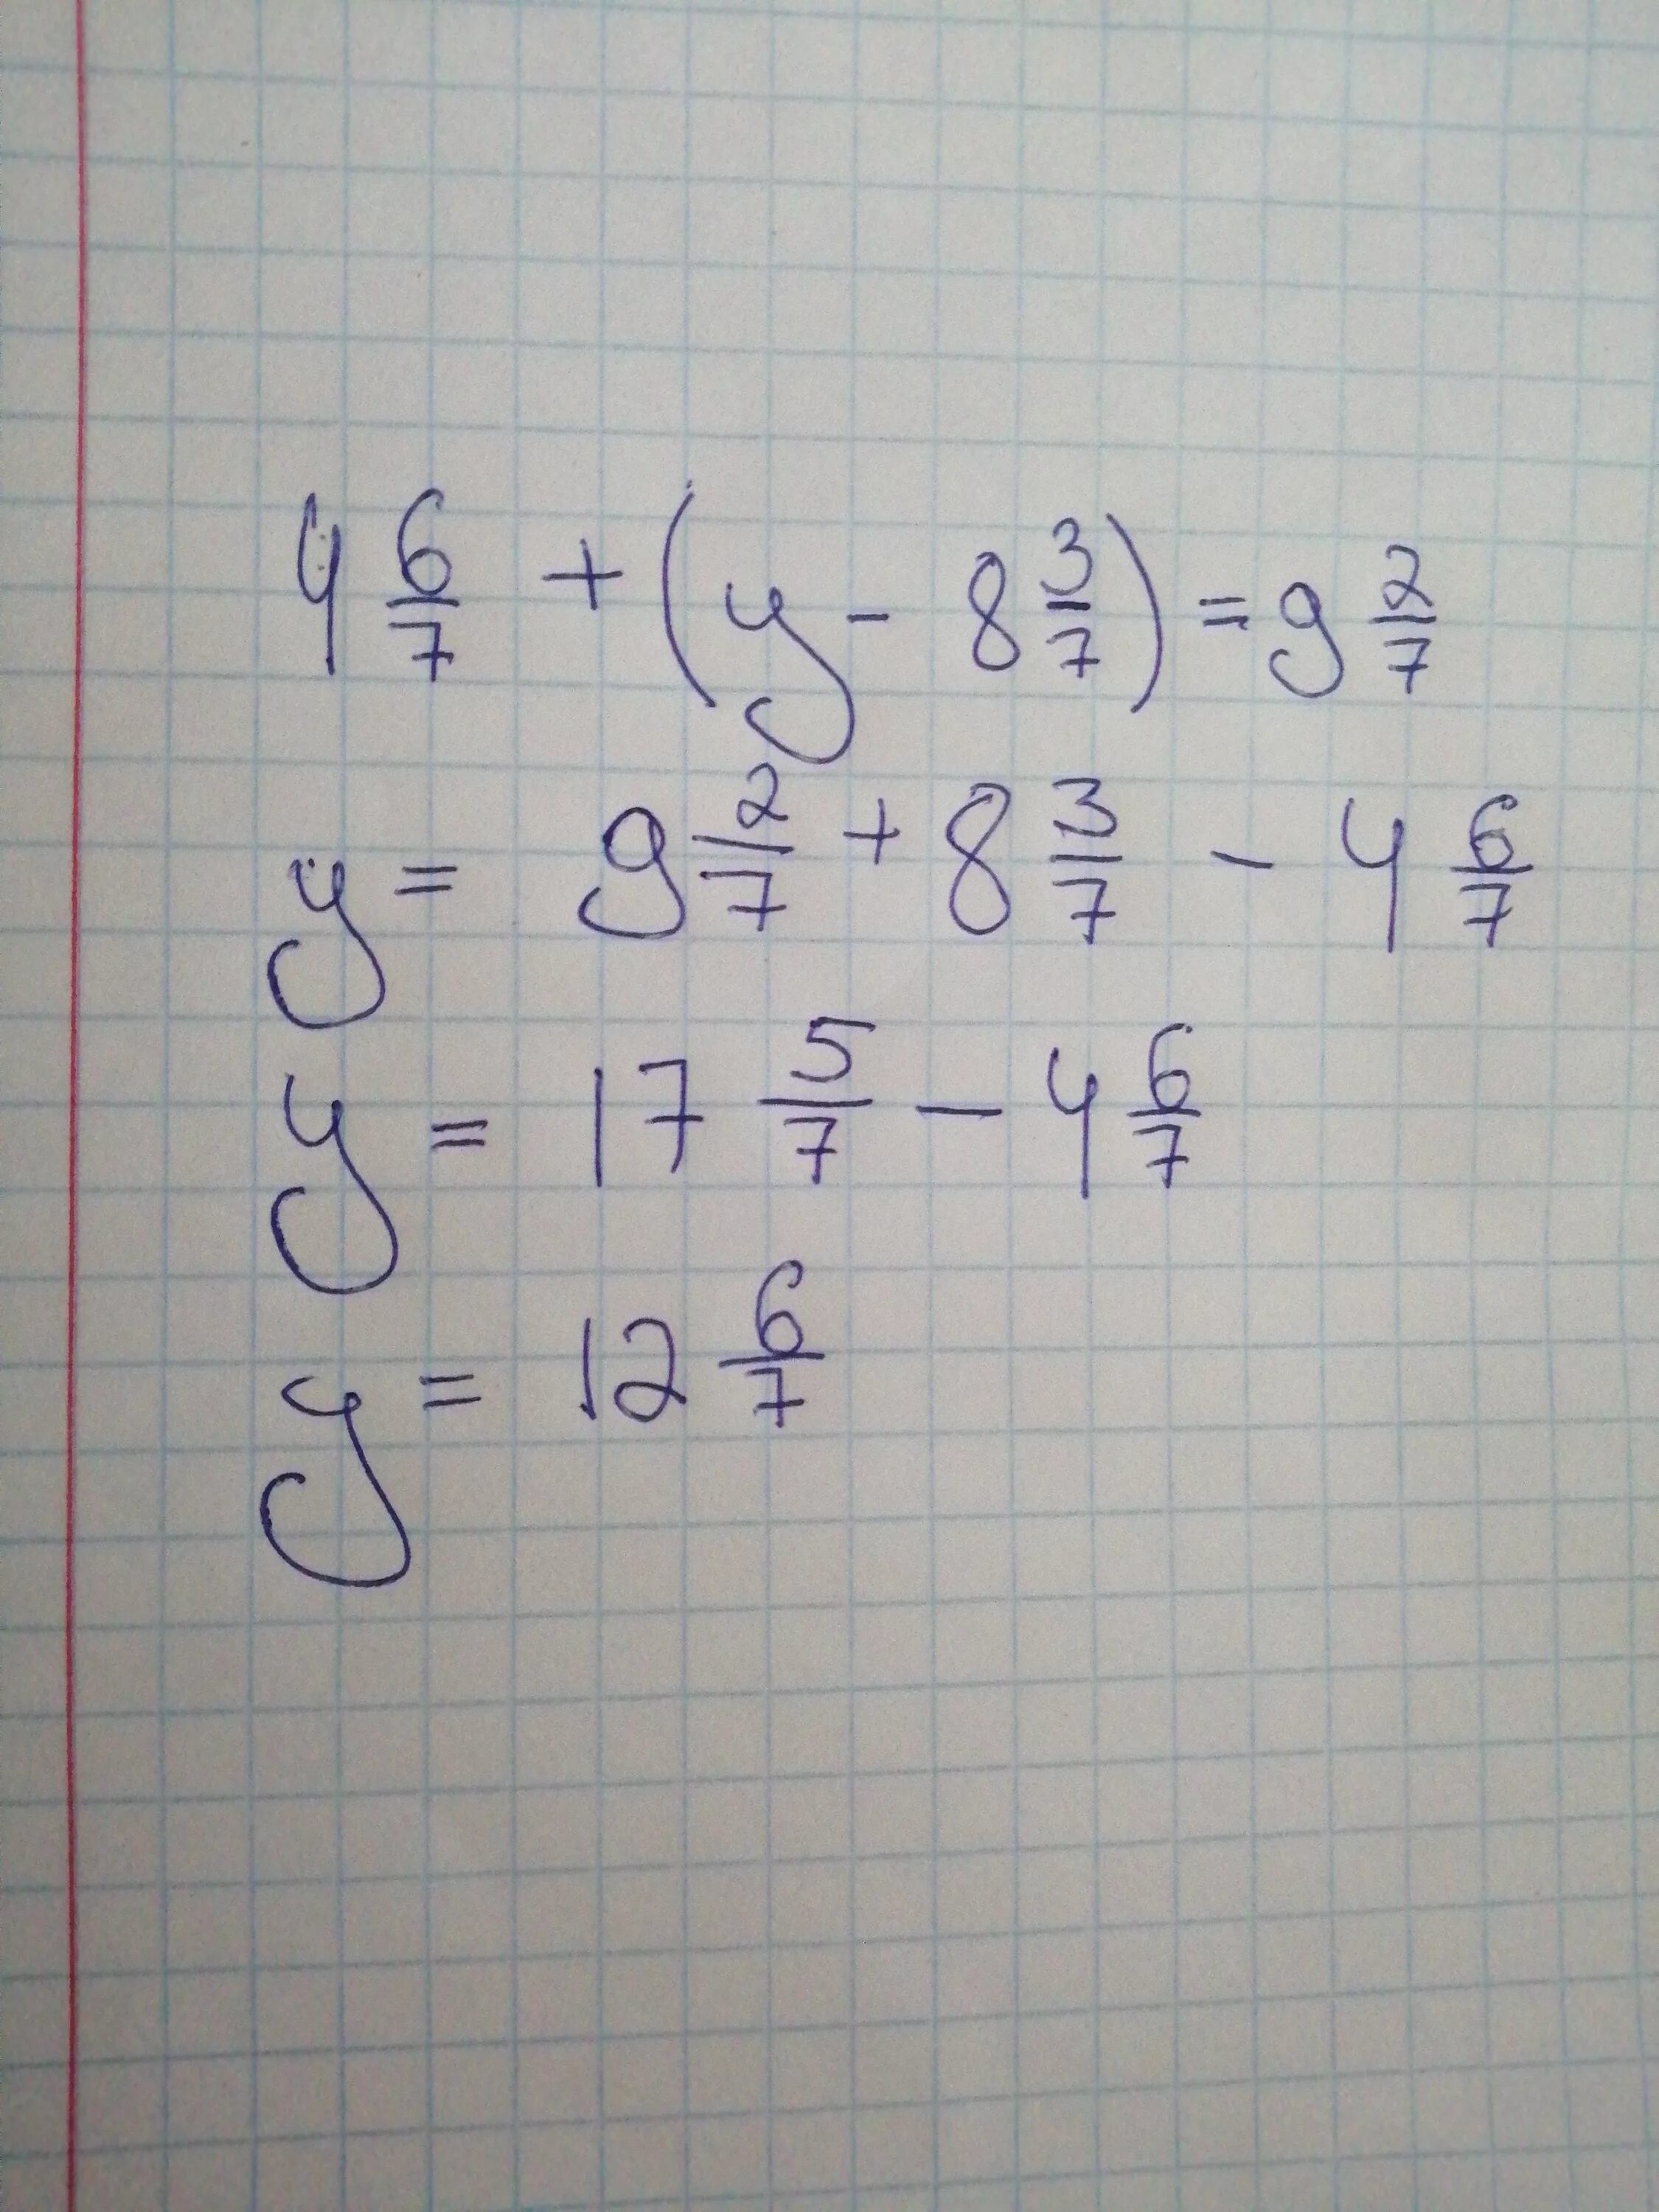 4 6/7 + (y - 8 3/7) = 9 2/7
y = 9 2/7 + 8 3/7 - 4 6/7
y = 17 5/7 - 4 6/7
y = 12 6/7